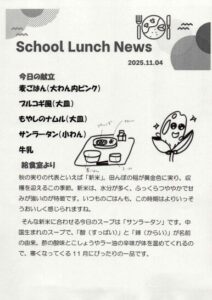 School Lunch News
2025.11.04
今日の献立
麦ごはん(大わん内ピンク)
プルコギ風(大皿)
もやしのナムル(大皿)
サンラータン(小わん)
牛乳
給食室より
秋の実りの代表といえば「新米」。田んぼの稲が黄金色に実り、収
穫を迎えるこの季節。新米は、水分が多く、ふっくらつややかで甘
みが強いのが特徴です。いつものごはんも、この時期はよりいっそ
うおいしく感じられますね。
そんな新米に合わせる今日のスープは「サンラータン」です。中
国生まれのスープで、「酸(すっぱい)」と「辣(からい)」が名前
の由来。酢の酸味とこしょうやラー油の辛味が体を温めてくれるの
で、寒くなってくる11月にぴったりの一品です。